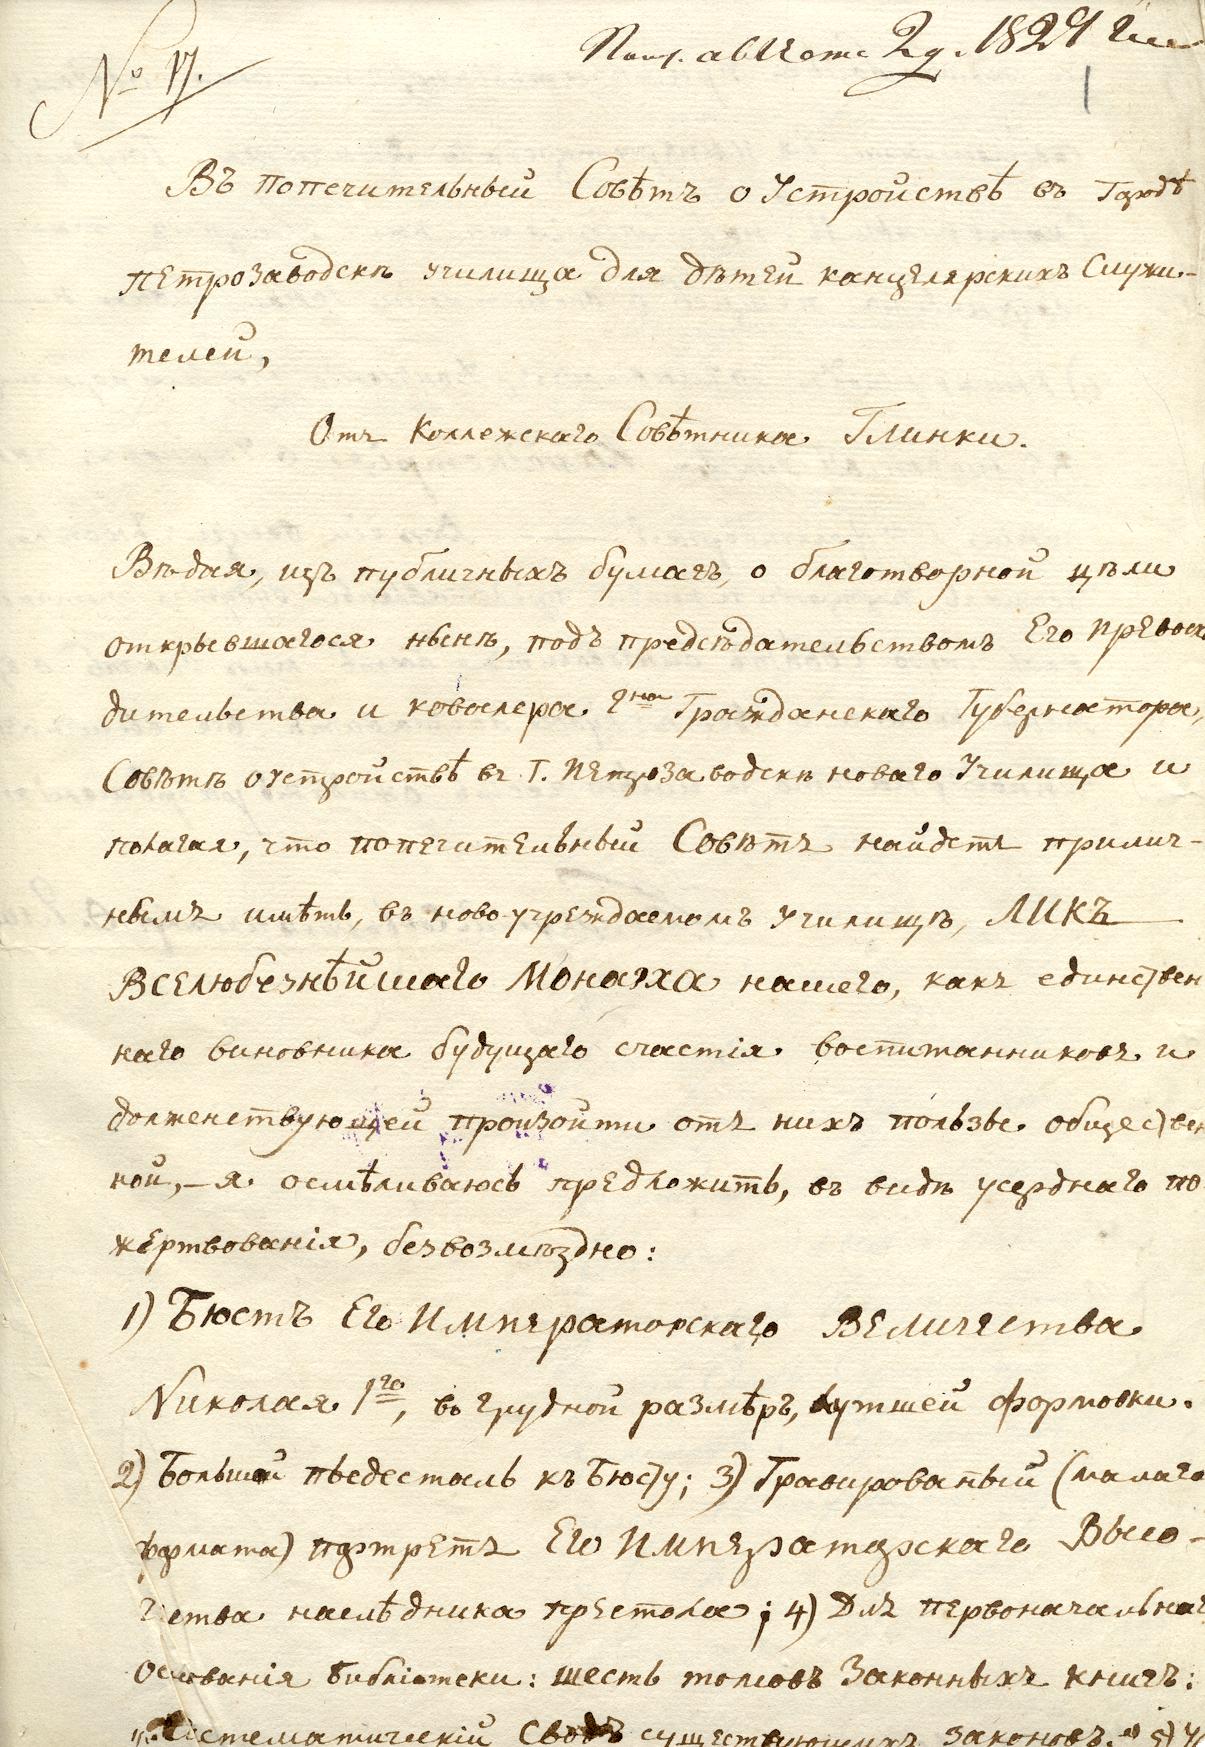 № 17.
Пол. августа 2д. 1829 г.
1
Въ попечительный Совѣтъ о Устройствѣ въ Городѣ
петрозаводскѣ училища для дѣтей канцелярскихъ Служи-
телей,
Отъ Коллежскаго Совѣтника Глинки.
Вѣдая, изъ публичныхъ бумагъ, о благотворной цѣли
открывшагося нынѣ, подъ предсѣдательствомъ Его превосхо
дительства и кавалера Гна Гражданскаго Губернатора,
Совѣтѣ о устройствѣ въ Г. Петрозаводскѣ новаго Училища и
полагая, что попечительный Совѣтъ найдетъ прилич-
нымъ имѣть, въ ново-учреждаемомъ Училищѣ, ЛИКЪ
Вселюбезнѣйшаго Монарха нашего, какъ единствен
наго виновника будущаго счастія воспитанниковъ и
долженствующей произойти отъ нихъ пользы обществен
ной,-я осмѣливаюсь предложить, въ видѣ усерднаго по
жертвованія, безвозмѣздно:
1) Бюстъ Его Императорскаго Величества
Николая 1го, въ грудной размѣръ, лутшей формовки.
2) Большой пьедесталь къ Бюсту; 3) Гравированый (малаго
формата) портретъ Его Императорскаго Высо-
чества наслѣдника престола; 4) Для первоначальнаг
Основанія библіотеки: шесть томовъ Законныхъ книгъ:
„Систематическій Сводъ существующихъ законовъ." 5)